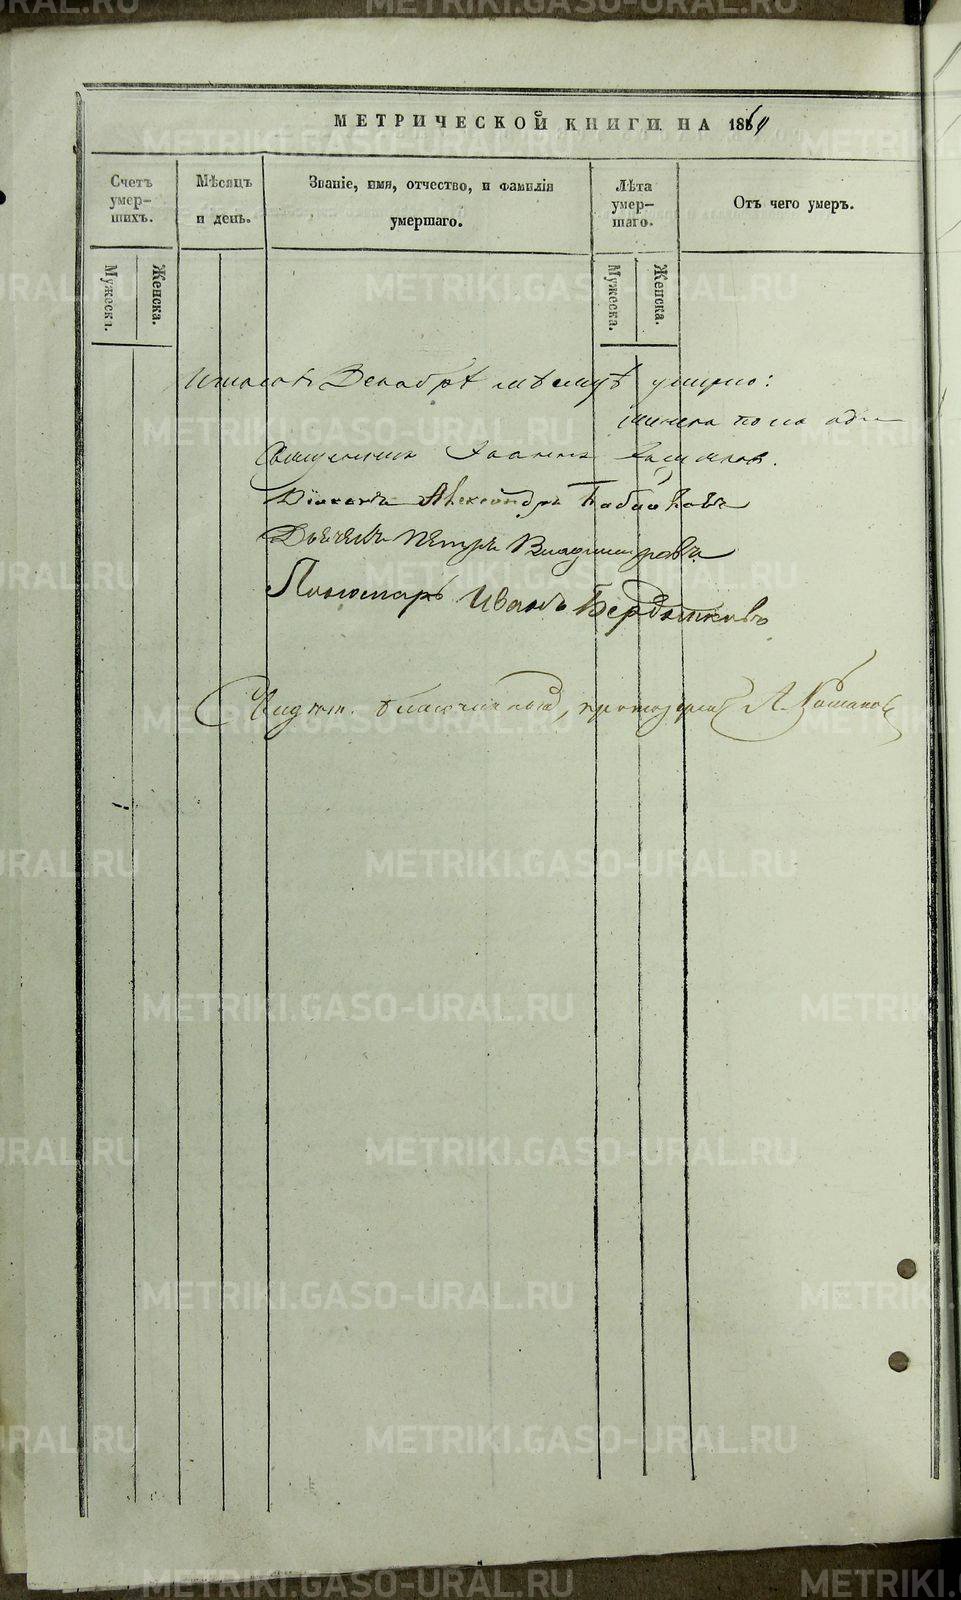 МЕТРИЧЕСКОЙ КНИГИ НА 1864
Счетъ умер-шихъ.
Мѣсяцъ и день.
Званіе, имя, отчество, и фамилія умершаго.
Лѣта умер-шаго.
Отъ чего умеръ.
Мужеска.
Женска.
Мужеска.
Женска.
Декабрѣ мѣсяцѣ умерло:
пола
Священникъ Іоаннъ
Діаконъ Александръ Бабиковъ
Дьячекъ Петръ Владимировъ
Пономарь Иванъ Бердышковъ
благочинный, протоіерей
METRIKI.GASO-URAL.RU